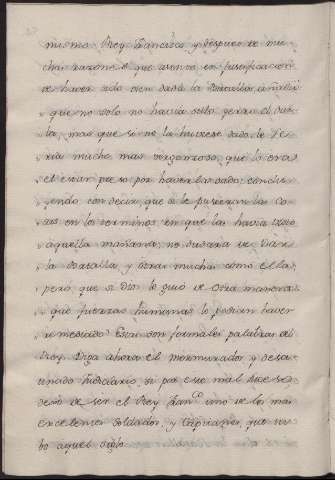 mismo Rey Francisco, y despues de mu-
chas razones que asento en justificacion
de haver sido bien dada la Batalla, añadio
que no solo no havia sido yerro el dar-
la, mas que si no la huviese dado, le se-
ria mucho mas vergonzoso, que lo era
el estar preso por haverla dado; conclu-
yendo con decir, que si le pusieran las co-
sas en los terminos, en que las havia visto
aquella mañana, no dudara de dar
la Batalla, y otras muchas como ella,
pero que si Dios lo guió de otra manera
que fuerzas humanas lo podian haver
remediado? Estas son formales palabras del
Rey. Diga ahora el mormurador, y desa-
tinado Judiciario, si por ese mal suce-
de ser el Rey Franco uno de los mas
excelentes soldados, y Capitanes, que hu-
bo aquel siglo.